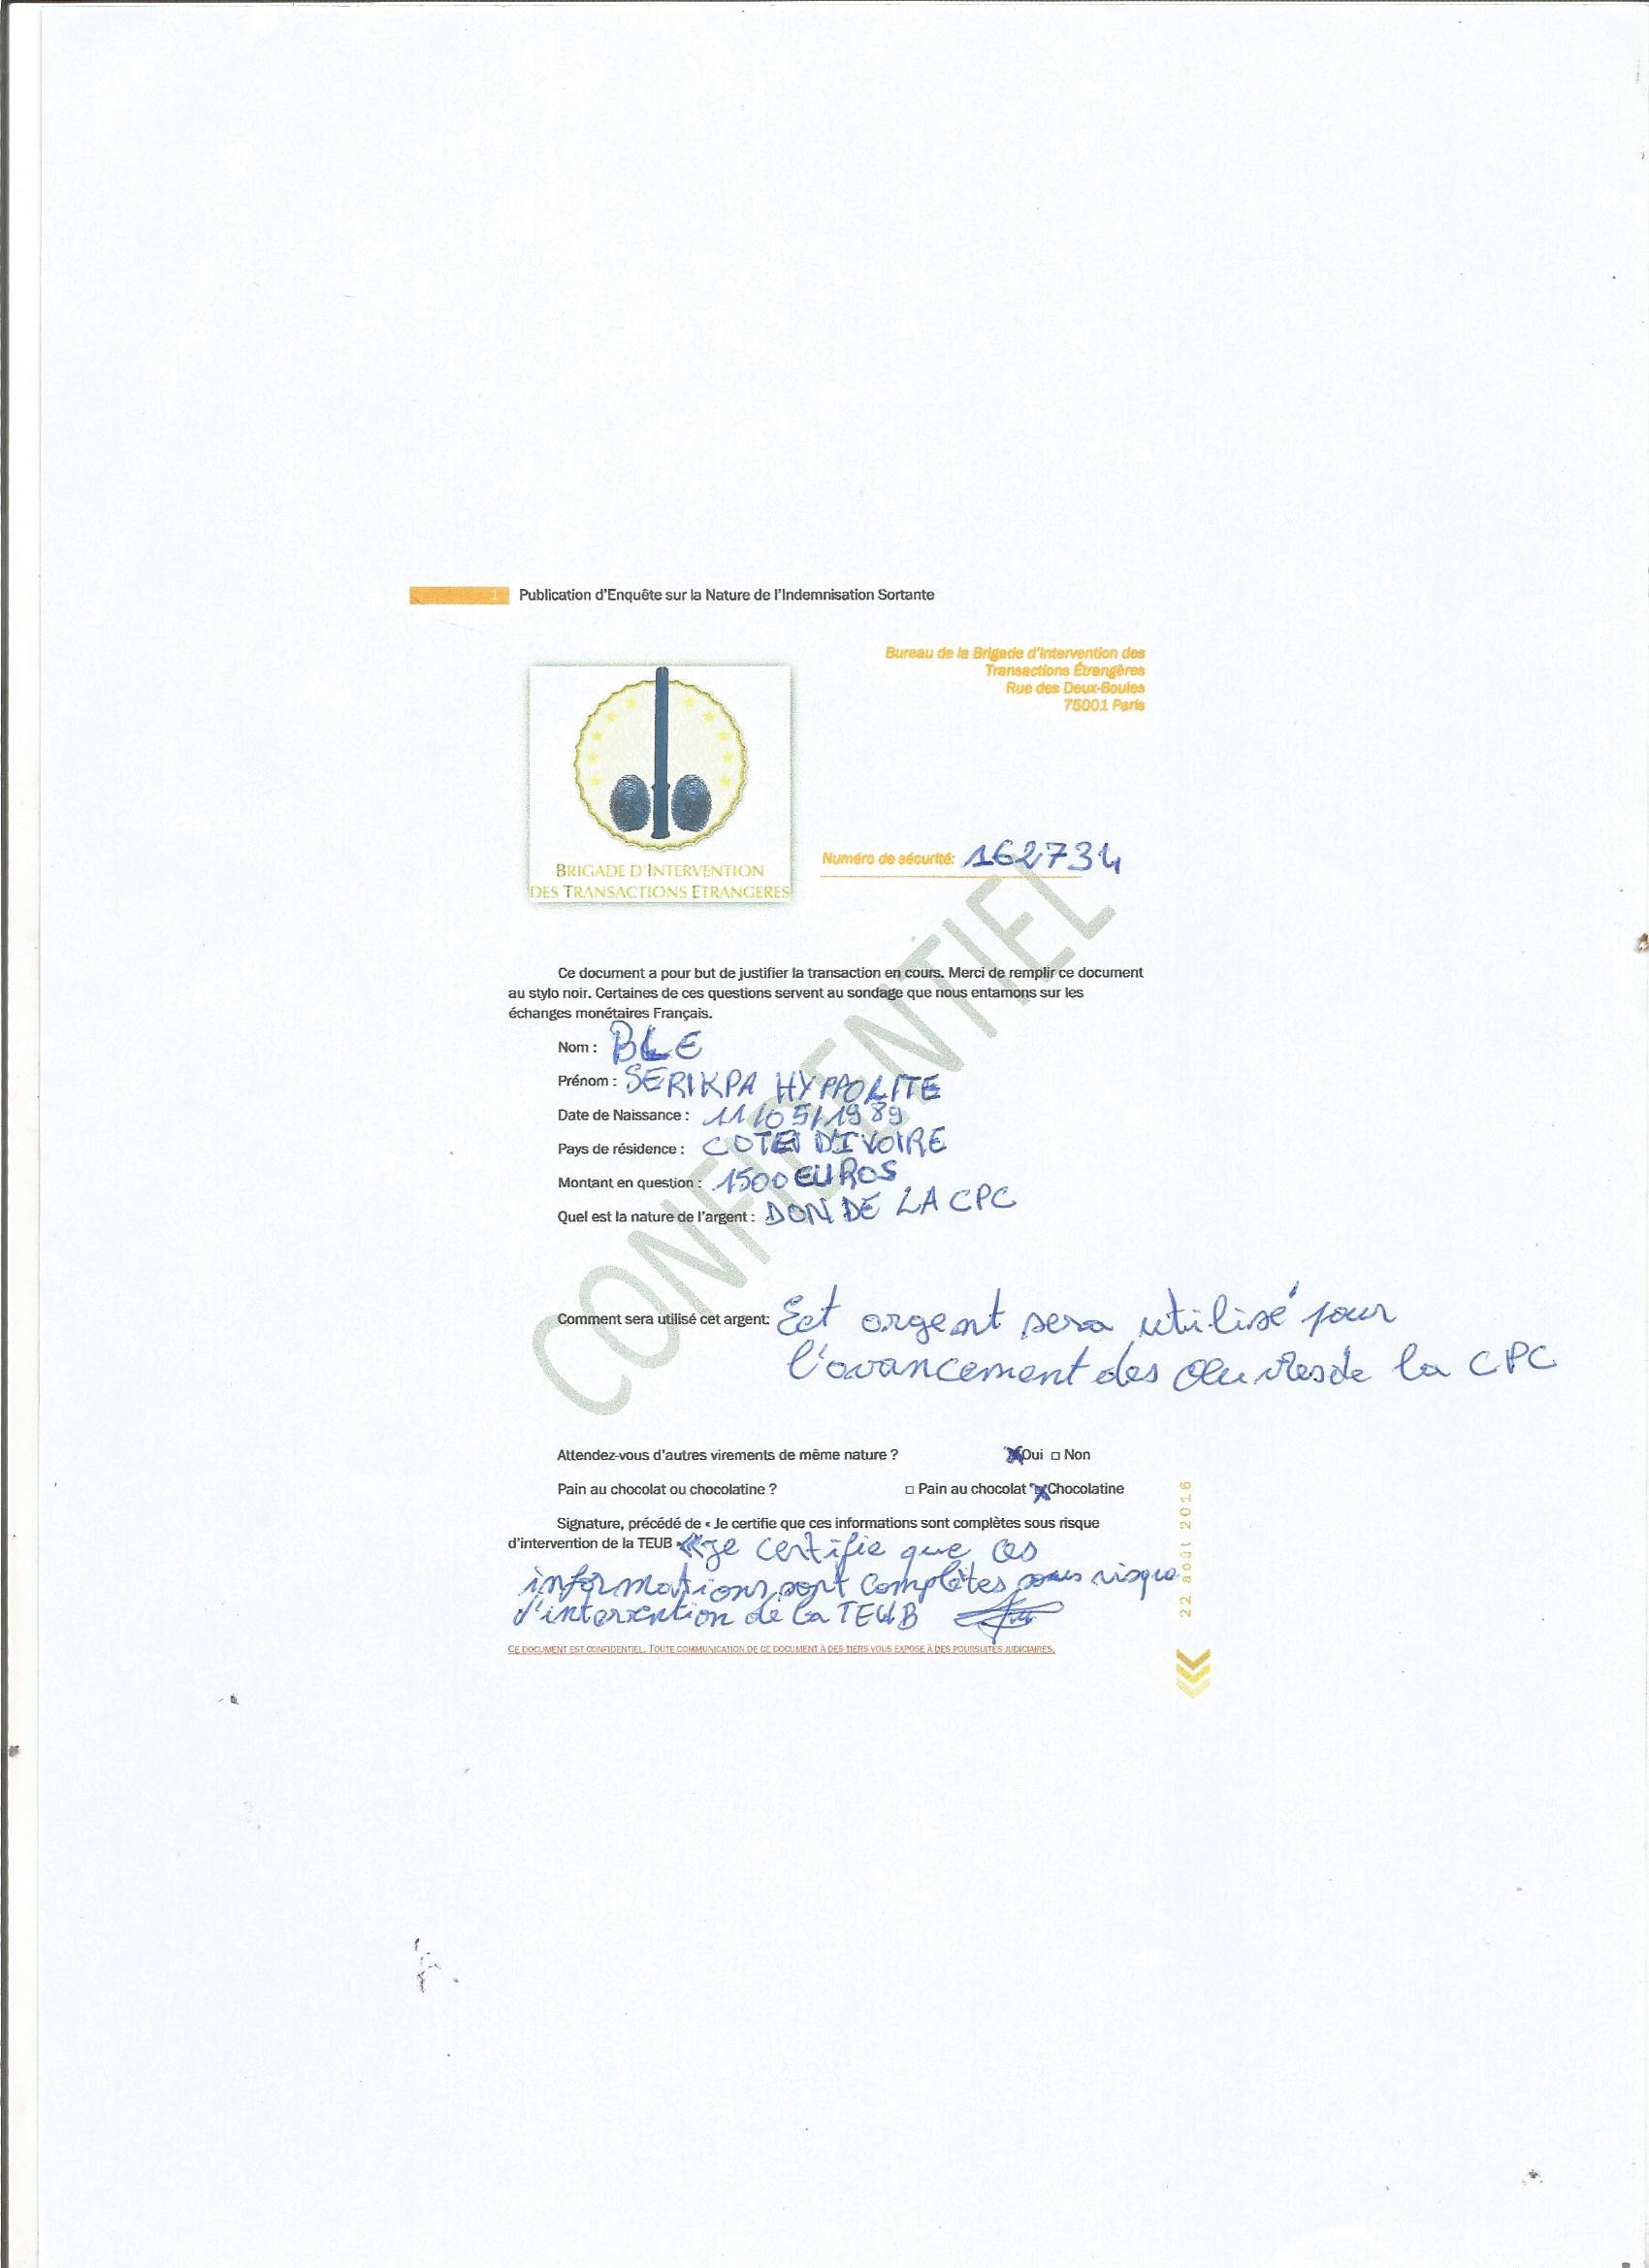 1 Publication d'Enquête sur la Nature de l'Indemnisation Sortante
Bureau de la Brigade d'Intervention des
Transactions Étrangères
Rue des Deux-Boules
75001 Paris
BRIGADE D'INTERVENTION
DES TRANSACTIONS ETRANGERES
Numéro de sécurité: 162734
CONFIDENTIEL
Ce document a pour but de justifier la transaction en cours. Merci de remplir ce document
au stylo noir. Certaines de ces questions servent au sondage que nous entamons sur les
échanges monétaires Français.
Nom : BLE
Prénom : SERIKPA HYPPOLITE
Date de Naissance : 11/05/1989
Pays de résidence : COTE D'IVOIRE
Montant en question : 1500 EUROS
Quel est la nature de l'argent : DON DE LA CPC
Comment sera utilisé cet argent: Ect argent sera utilisé pour
l'avancement des de la CPC
Attendez-vous d'autres virements de même nature ? Oui Non
Pain au chocolat ou chocolatine ? Pain au chocolat Chocolatine
Signature, précédé de « Je certifie que ces informations sont complètes sous risque
d'intervention de la TEUB » «je certifie que ces
informations sont complètes sous risque
d'intervention de la TEUB
22 août 2016
CE DOCUMENT EST CONFIDENTIEL. TOUTE COMMUNICATION DE CE DOCUMENT À DES TIERS VOUS EXPOSE À DES POURSUITES JUDICIAIRES.